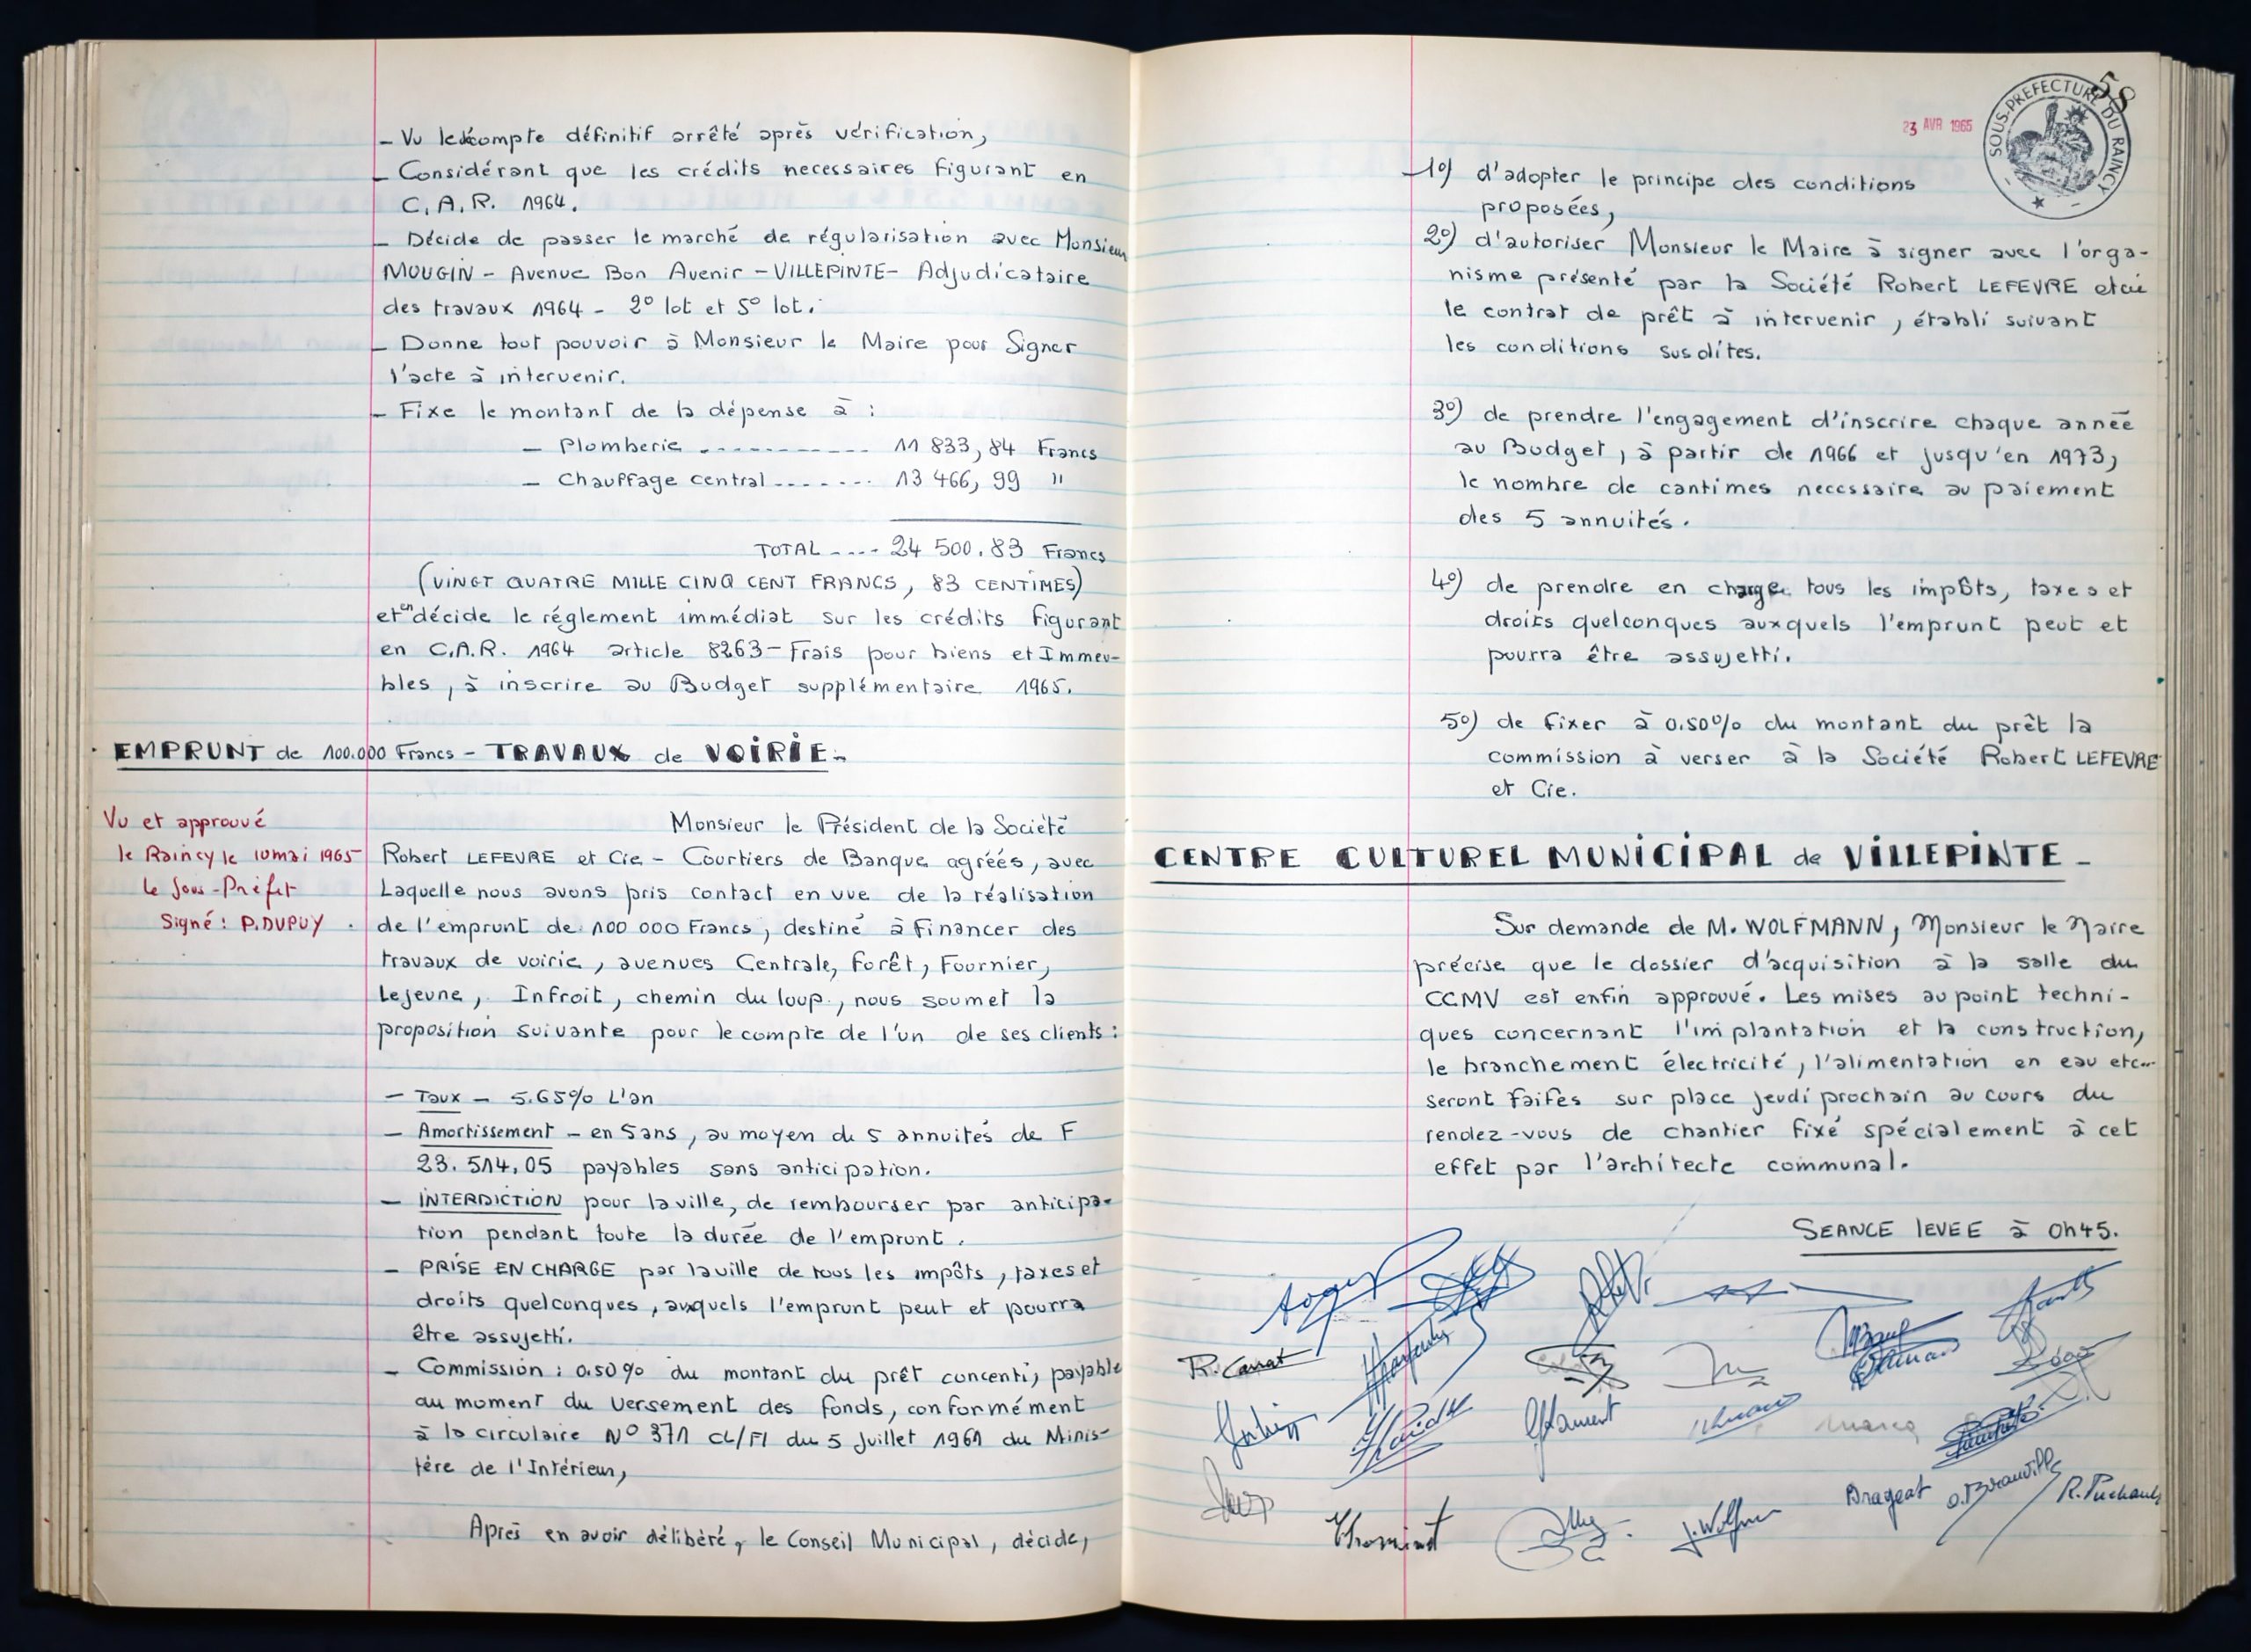 - Vu le décompte définitif arrêté après vérification,
- Considérant que les crédits necessaires figurant en
C.A.R. 1964.
- Décide de passer le marché de régularisation avec Monsieur
MOUGIN - Avenue Bon Avenir - VILLEPINTE - Adjudicataire
des travaux 1964 - 2° lot et 5° lot.
- Donne tout pouvoir à Monsieur le Maire pour Signer
l'acte à intervenir.
- Fixe le montant de la dépense à :
- Plomberie ----------- 11 833,84 Francs
- Chauffage central ------- 13 466,99 "
TOTAL ---- 24 500.83 Francs
(VINGT QUATRE MILLE CINQ CENT FRANCS, 83 CENTIMES)
et en décide le réglement immédiat sur les crédits figurant
en C.A.R. 1964 article 8263 - Frais pour biens et Immeu-
bles, à inscrire au Budget supplémentaire 1965.
EMPRUNT de 100.000 Francs - TRAVAUX de VOIRIE -
Vu et approuvé
le Raincy le 10 mai 1965
Le Sous-Préfet
Signé : P. DUPUY.
Monsieur le Président de la Société
Robert LEFEVRE et Cie - Courtiers de Banque agréés, avec
Laquelle nous avons pris contact en vue de la réalisation
de l'emprunt de 100 000 Francs, destiné à financer des
travaux de voirie, avenues Centrale, Forêt, Fournier,
Lejeune, Infroit, chemin du loup, nous soumet la
proposition suivante pour le compte de l'un de ses clients :
- Taux - 5.65% L'an
- Amortissement - en 5 ans, au moyen de 5 annuités de F
23.514,05 payables sans anticipation.
- INTERDICTION pour la ville, de rembourser par anticipa-
tion pendant toute la durée de l'emprunt.
- PRISE EN CHARGE par la ville de tous les impôts, taxes et
droits quelconques, auxquels l'emprunt peut et pourra
être assujetti.
- Commission : 0.50% du montant du prêt concenti, payable
au moment du versement des fonds, conformément
à la circulaire N° 371 CL/FI du 5 Juillet 1961 du Minis-
tère de l'Intérieur,
Après en avoir délibéré, le Conseil Municipal, décide,
58
23 AVR 1965
SOUS-PREFECTURE DU RAINCY
1°) d'adopter le principe des conditions
proposées,
2°) d'autoriser Monsieur le Maire à signer avec l'orga-
nisme présenté par la Société Robert LEFEVRE et Cie
le contrat de prêt à intervenir, établi suivant
les conditions susdites.
3°) de prendre l'engagement d'inscrire chaque année
au Budget, à partir de 1966 et jusqu'en 1973,
le nombre de centimes necessaire au paiement
des 5 annuités.
4°) de prendre en charge tous les impôts, taxes et
droits quelconques auxquels l'emprunt peut et
pourra être assujetti.
5°) de fixer à 0.50% du montant du prêt la
commission à verser à la Société Robert LEFEVRE
et Cie.
CENTRE CULTUREL MUNICIPAL de VILLEPINTE -
Sur demande de M. WOLFMANN, Monsieur le Maire
précise que le dossier d'acquisition à la salle du
CCMV est enfin approuvé. Les mises au point techni-
ques concernant l'implantation et la construction,
le branchement électricité, l'alimentation en eau etc...
seront faites sur place jeudi prochain au cours du
rendez-vous de chantier fixé spécialement à cet
effet par l'architecte communal.
SEANCE LEVEE à 0h45.
R. Carrat
Brageat